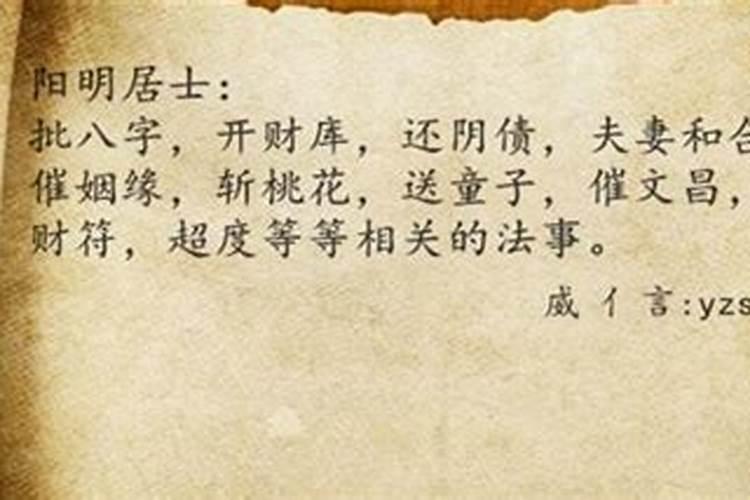 阳明居士：
批八字，开财库，还阴债，夫妻和合
催姻缘，斩桃花，送童子，催文昌，
财符，超度等等相关的法事。
威亻言:yzs